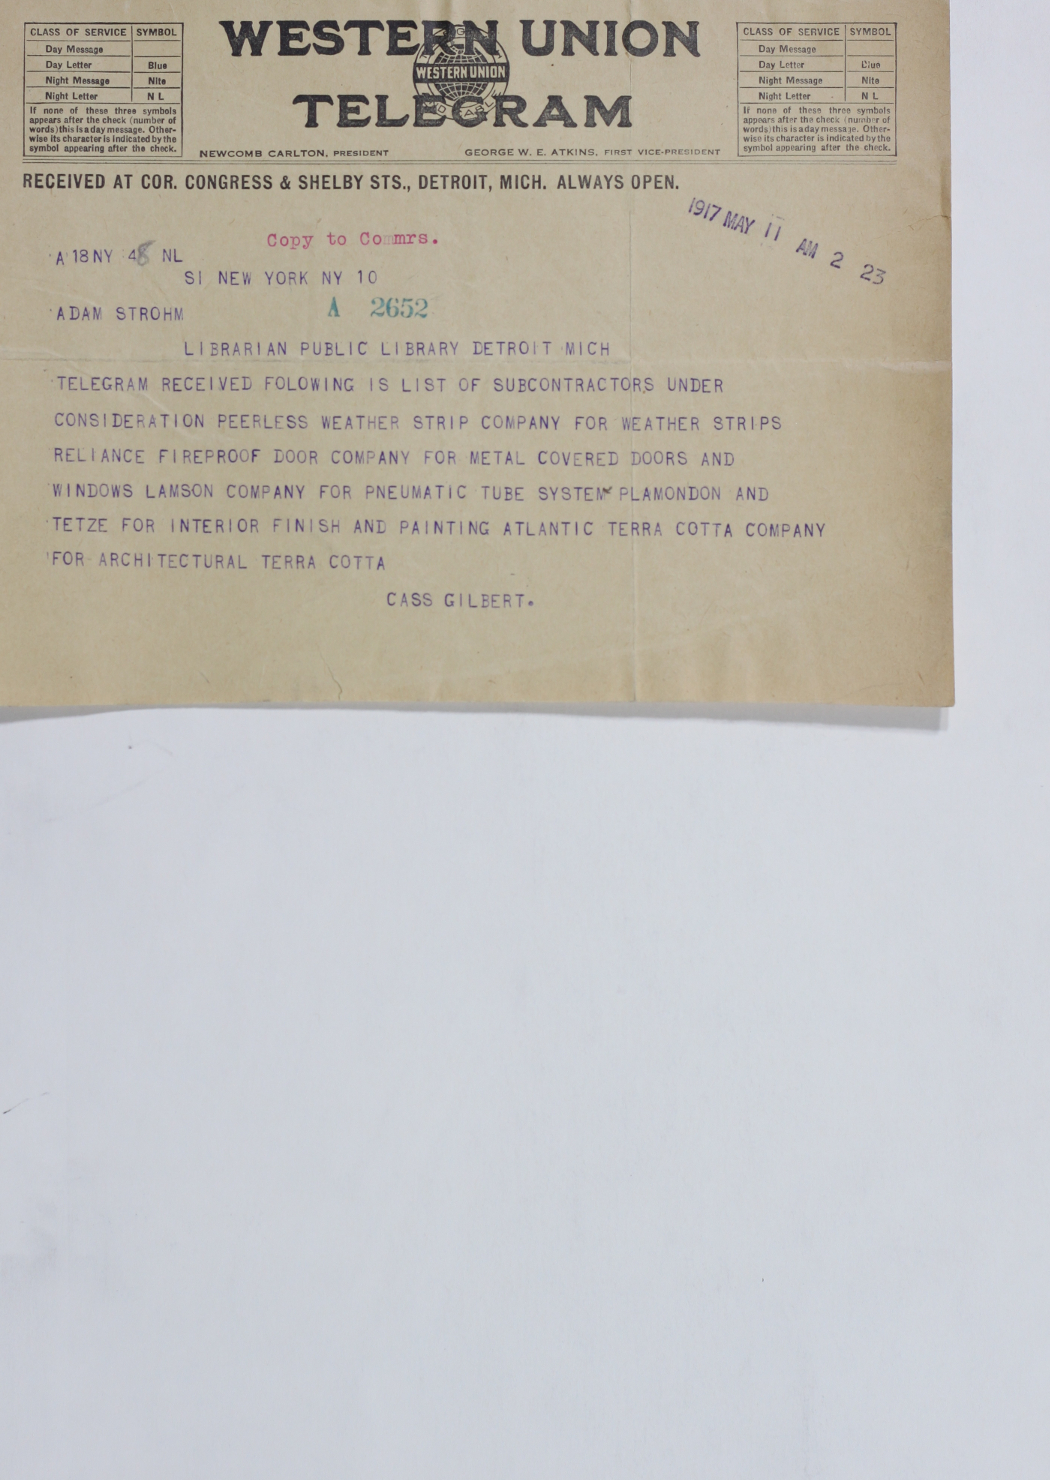 CLASS OF SERVICE SYMBOL
Day Message
Day Letter Blue
Night Message Nite
Night Letter N L
If none of these three symbols
appears after the check (number of
words) this is a day message. Other-
wise its character is indicated by the
symbol appearing after the check.
WESTERN UNION
WESTERN UNION
TELEGRAM
NEWCOMB CARLTON, PRESIDENT GEORGE W. E. ATKINS, FIRST VICE-PRESIDENT
CLASS OF SERVICE SYMBOL
Day Message
Day Letter Blue
Night Message Nite
Night Letter N L
If none of these three symbols
appears after the check (number of
words) this is a day message. Other-
wise its character is indicated by the
symbol appearing after the check.
RECEIVED AT COR. CONGRESS & SHELBY STS., DETROIT, MICH. ALWAYS OPEN.
1917 MAY 11 AM 2 23
Copy to Commrs.
A 18NY 48 NL
SI NEW YORK NY 10
A 2652
ADAM STROHM
LIBRARIAN PUBLIC LIBRARY DETROIT MICH
TELEGRAM RECEIVED FOLOWING IS LIST OF SUBCONTRACTORS UNDER
CONSIDERATION PEERLESS WEATHER STRIP COMPANY FOR WEATHER STRIPS
RELIANCE FIREPROOF DOOR COMPANY FOR METAL COVERED DOORS AND
WINDOWS LAMSON COMPANY FOR PNEUMATIC TUBE SYSTEM PLAMONDON AND
TETZE FOR INTERIOR FINISH AND PAINTING ATLANTIC TERRA COTTA COMPANY
FOR ARCHITECTURAL TERRA COTTA
CASS GILBERT.